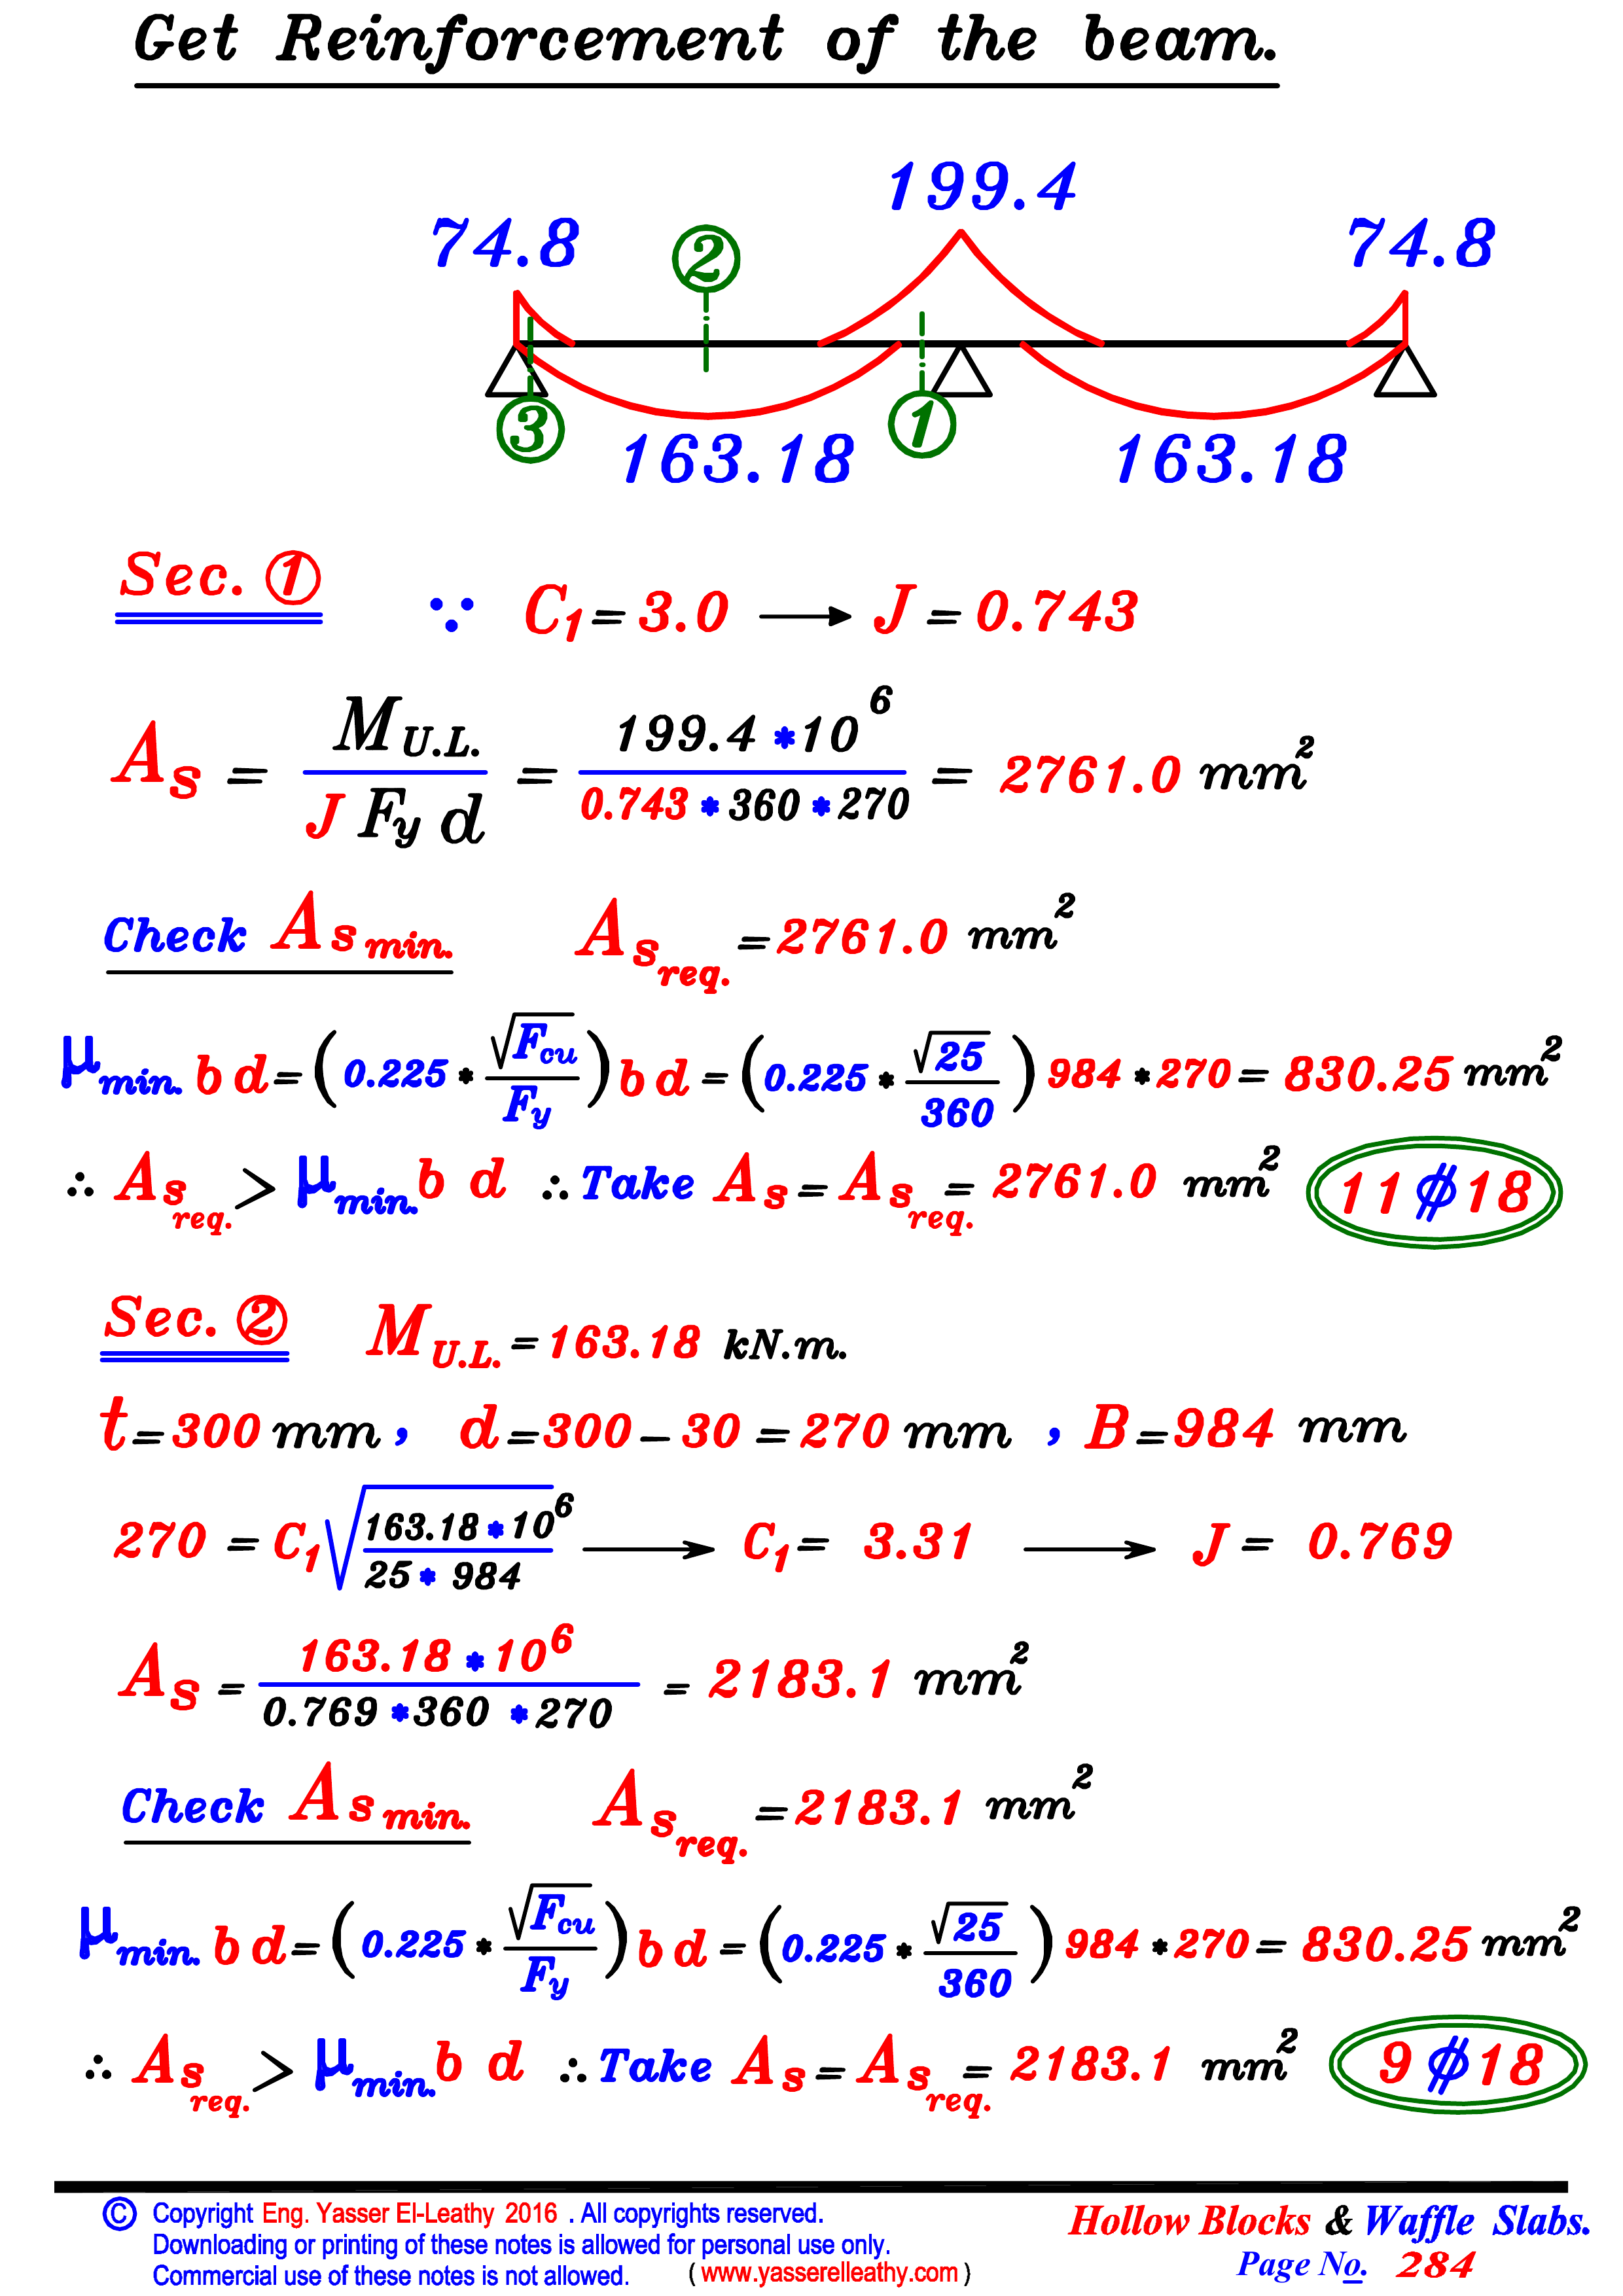 Get Reinforcement of the beam.
199.4
74.8 74.8
2
3 1
163.18 163.18
Sec. 1 ∵ C1 = 3.0 → J = 0.743
As = M U.L. / J Fy d = 199.4 * 10^6 / 0.743 * 360 * 270 = 2761.0 mm²
Check As min. As req. = 2761.0 mm²
μ min. b d = ( 0.225 * √Fcu / Fy ) b d = ( 0.225 * √25 / 360 ) 984 * 270 = 830.25 mm²
∴ As req. > μ min. b d ∴ Take As = As req. = 2761.0 mm² 11 ϕ 18
Sec. 2 M U.L. = 163.18 kN.m.
t = 300 mm , d = 300 - 30 = 270 mm , B = 984 mm
270 = C1 √(163.18 * 10^6 / 25 * 984) → C1 = 3.31 → J = 0.769
As = 163.18 * 10^6 / 0.769 * 360 * 270 = 2183.1 mm²
Check As min. As req. = 2183.1 mm²
μ min. b d = ( 0.225 * √Fcu / Fy ) b d = ( 0.225 * √25 / 360 ) 984 * 270 = 830.25 mm²
∴ As req. > μ min. b d ∴ Take As = As req. = 2183.1 mm² 9 ϕ 18
© Copyright Eng. Yasser El-Leathy 2016 . All copyrights reserved.
Downloading or printing of these notes is allowed for personal use only.
Commercial use of these notes is not allowed. ( www.yasserelleathy.com )
Hollow Blocks & Waffle Slabs.
Page No. 284